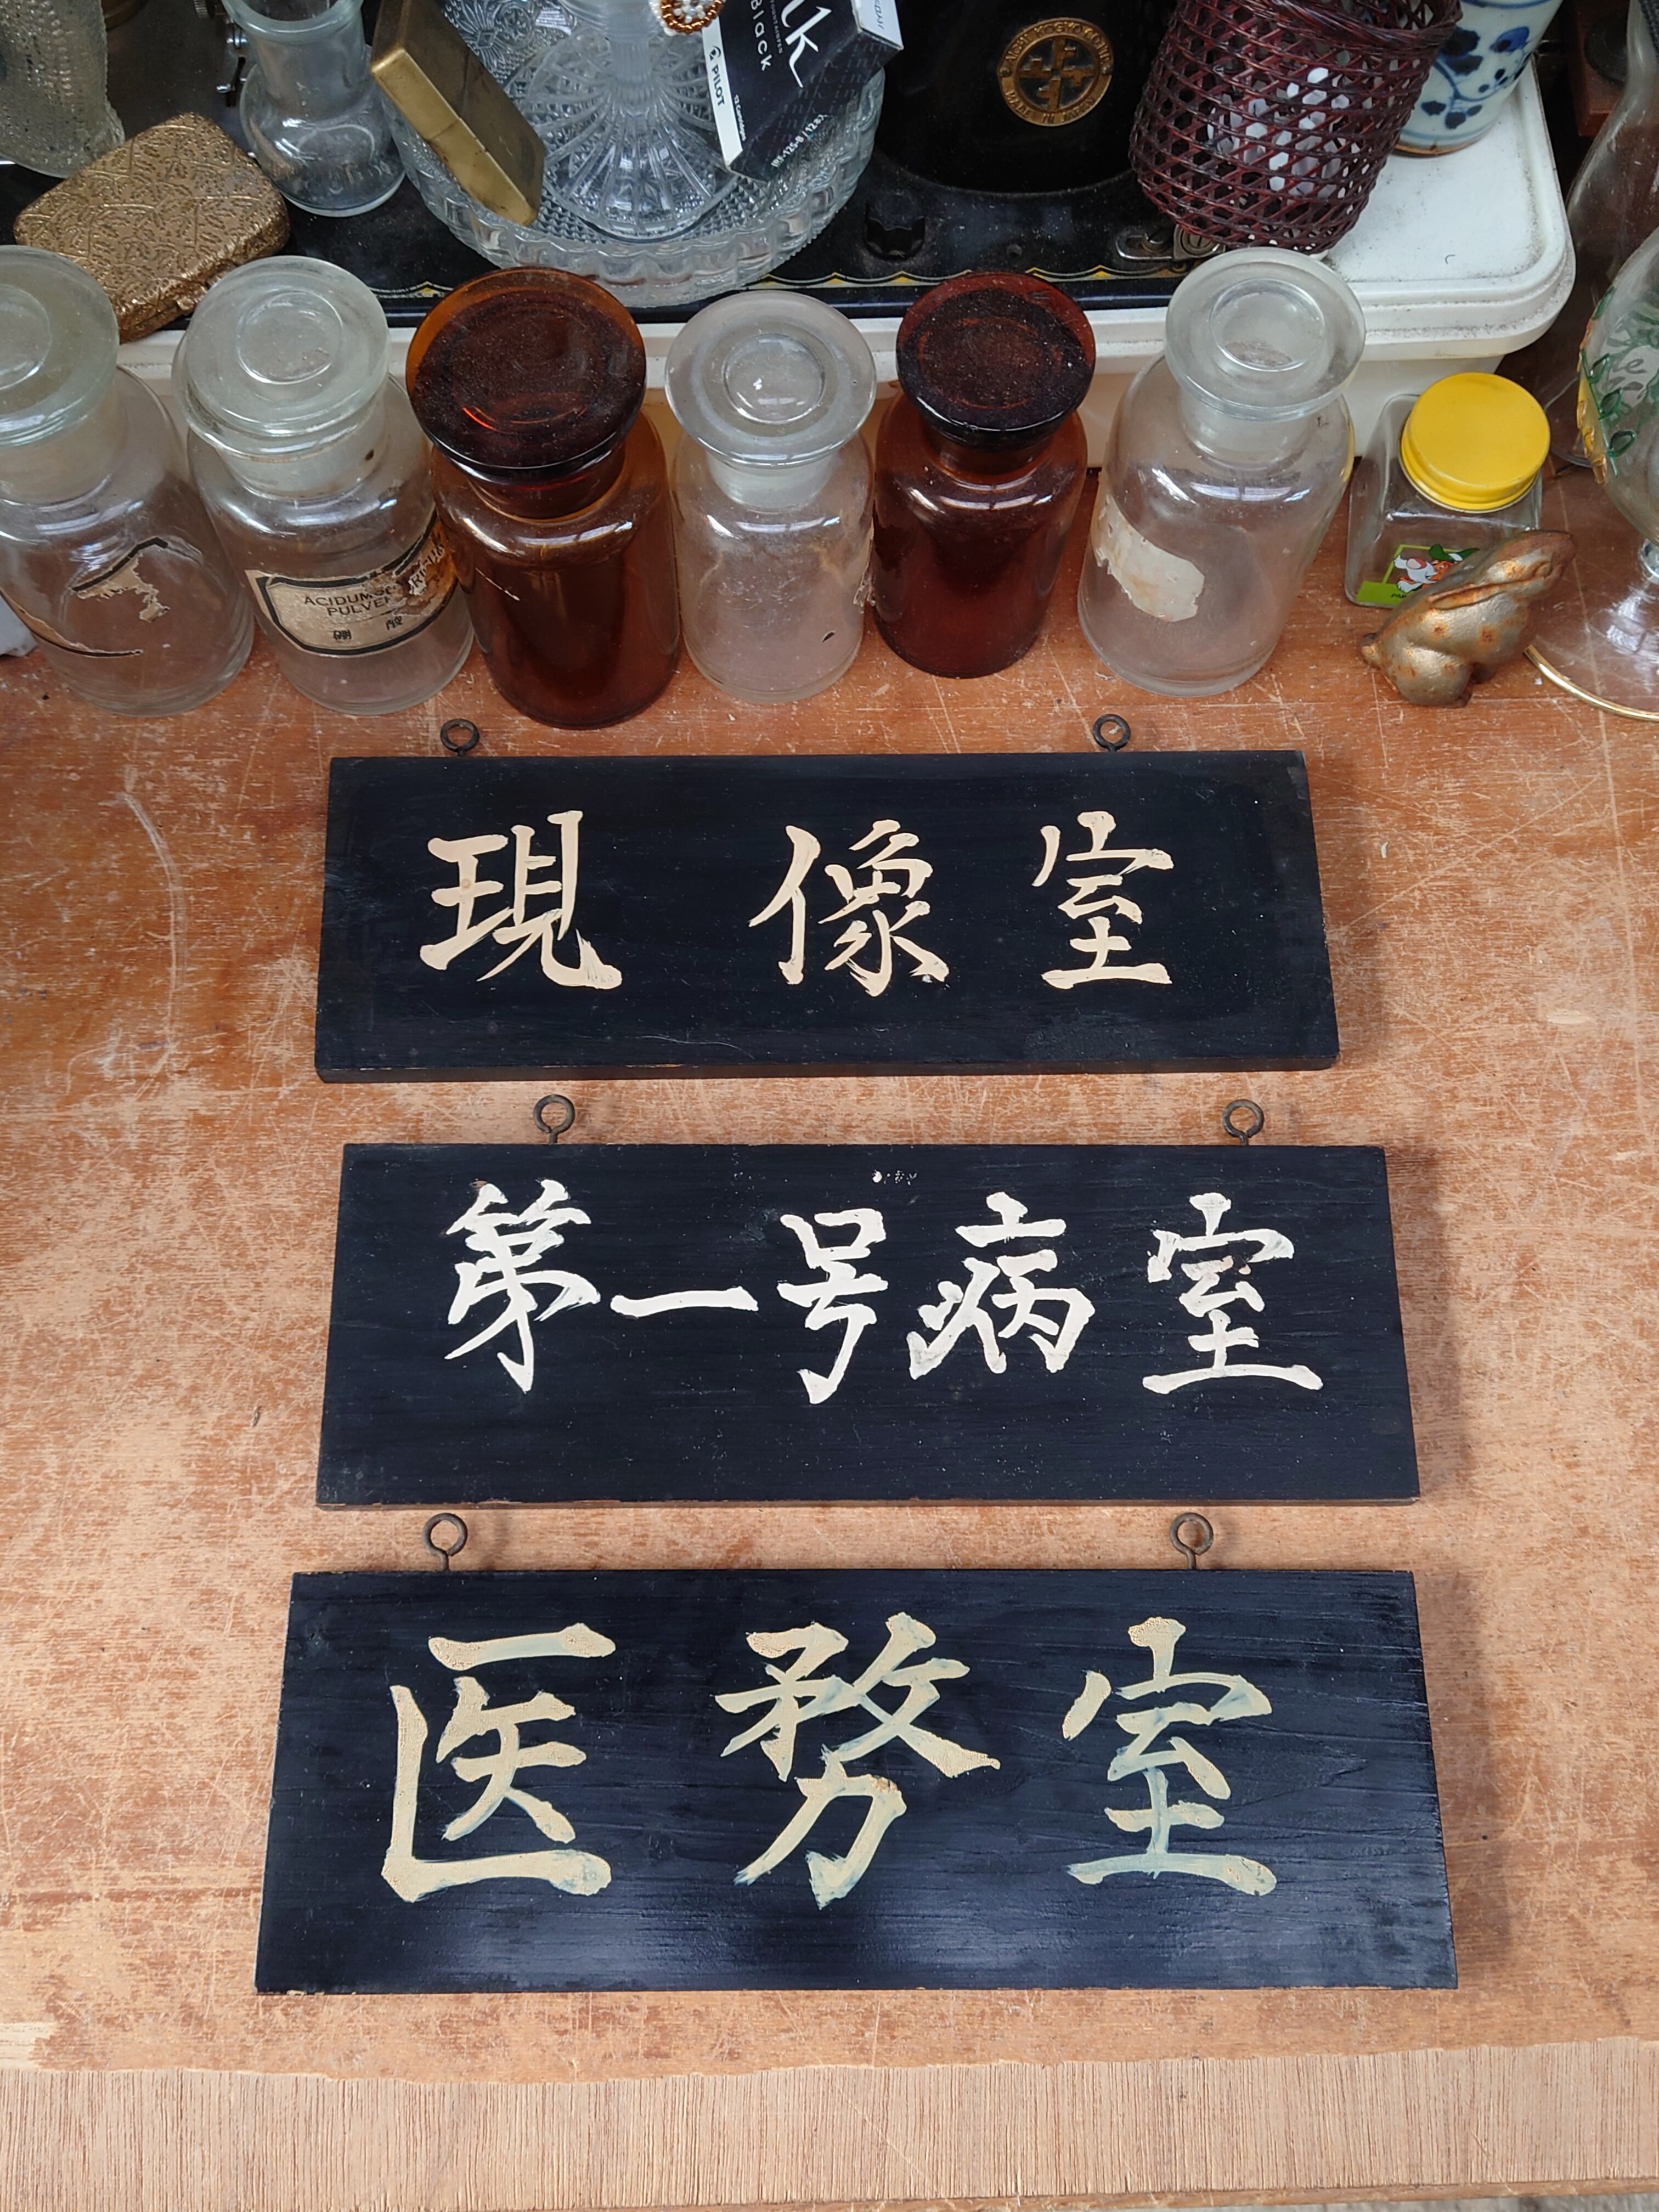 Black
PILOT
ACIDUM
PULVE
硼 酸
現像室
第一号病室
医務室